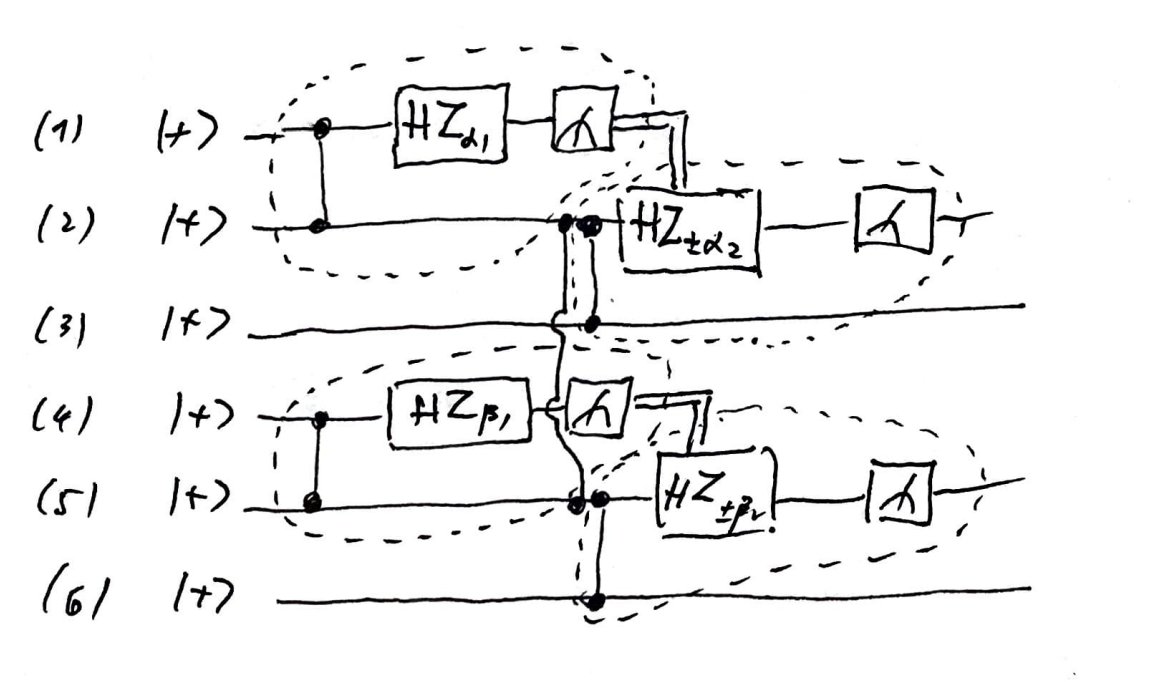 (1) |+> HZα₁
(2) |+> HZ±α₂
(3) |+>
(4) |+> HZβ₁
(5) |+> HZ±β₂
(6) |+>